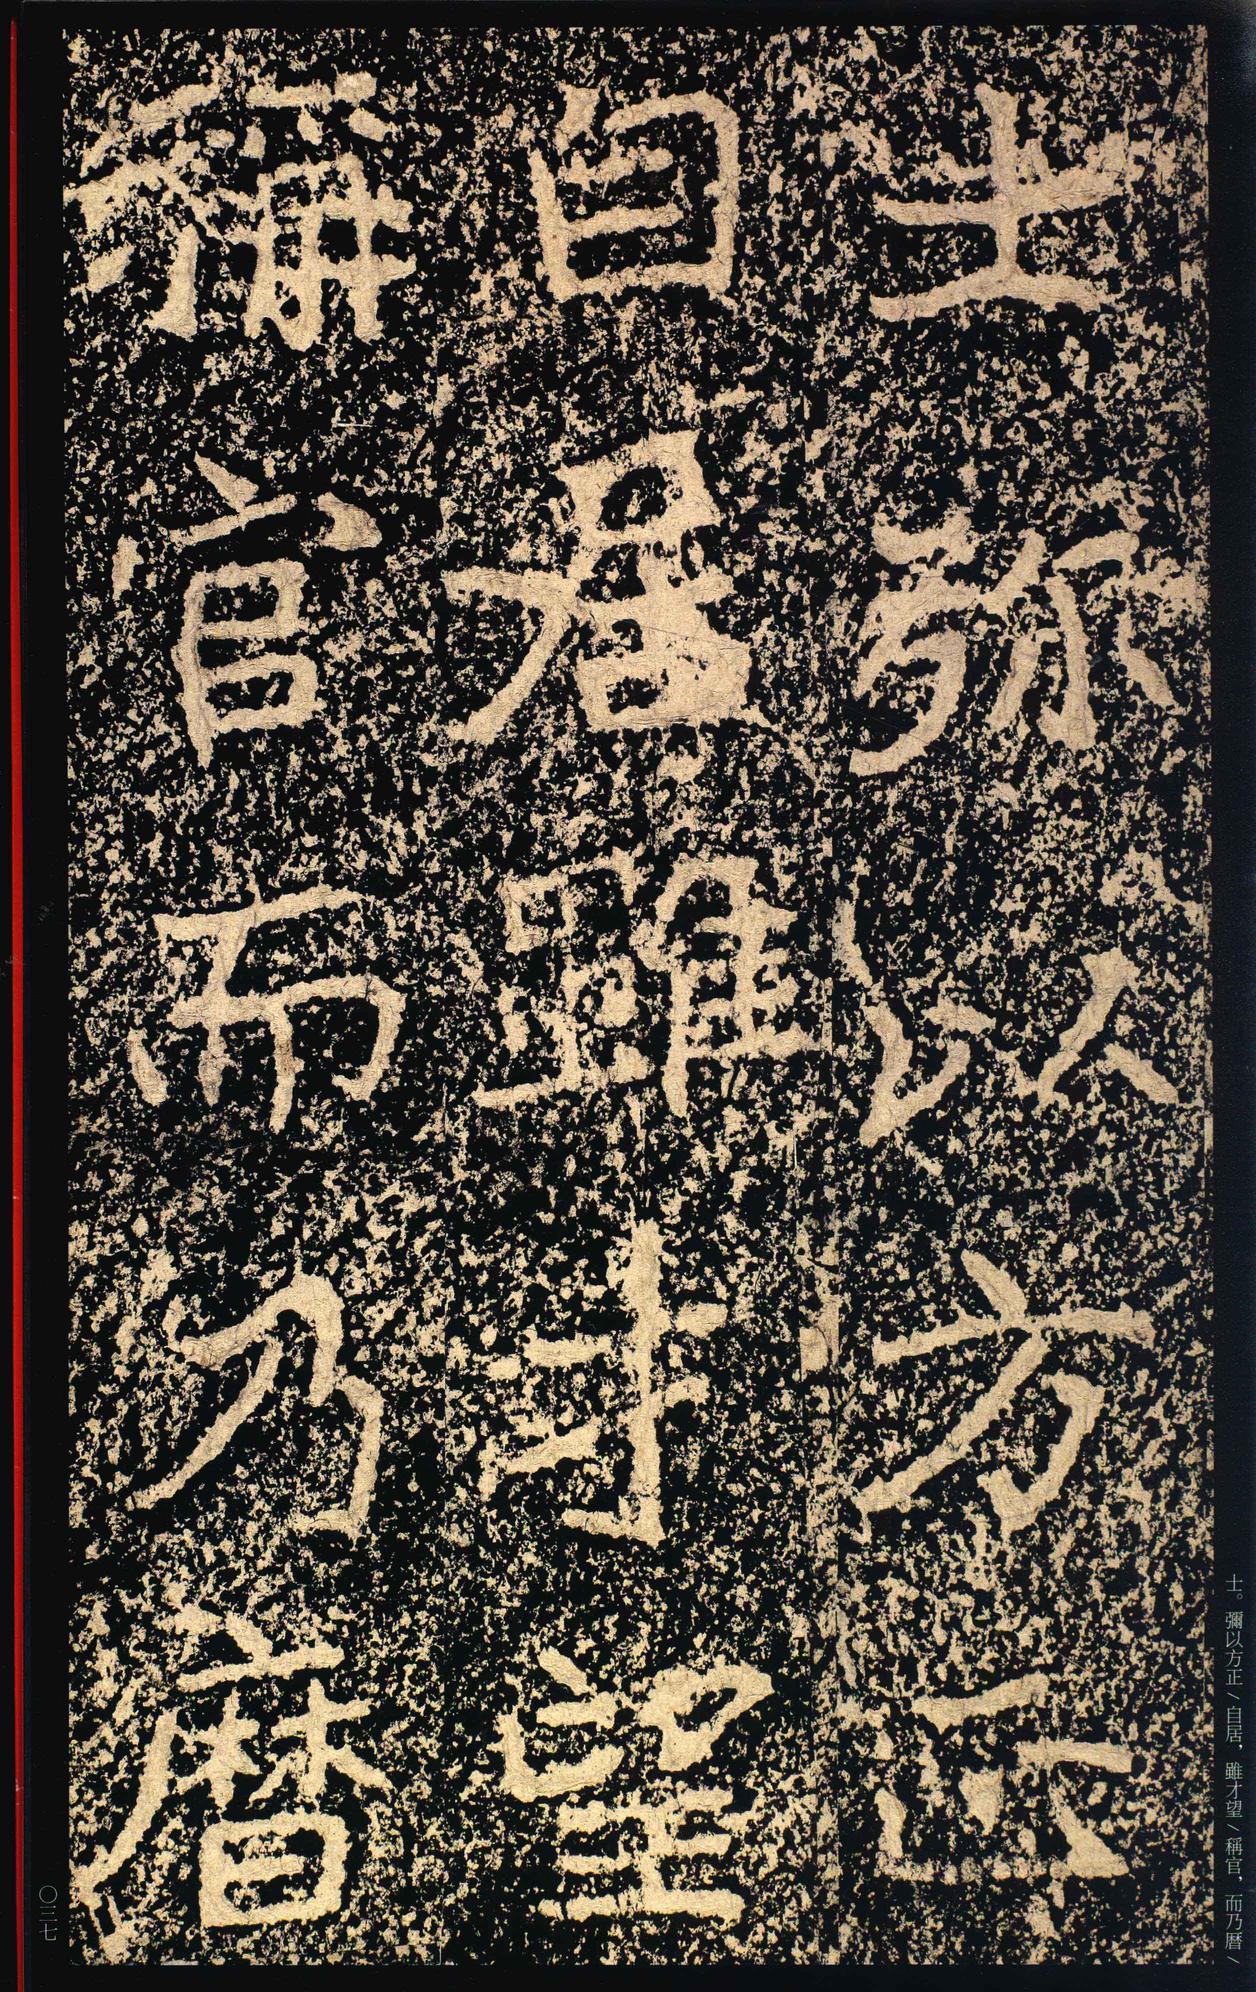 士弥以方正
自居雖才望
稱官而乃曆
士。彌以方正／自居，雖才望／稱官，而乃曆／
〇三七